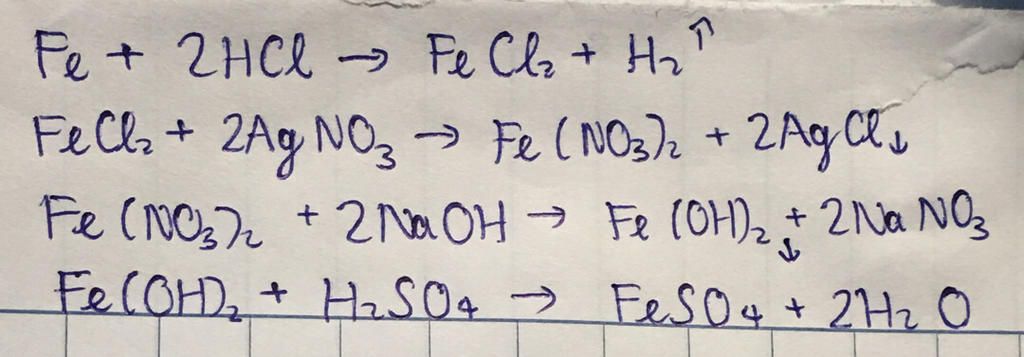 Fe + 2HCl → FeCl₂ + H₂↑
FeCl₂ + 2AgNO₃ → Fe(NO₃)₂ + 2AgCl↓
Fe(NO₃)₂ + 2NaOH → Fe(OH)₂↓ + 2NaNO₃
Fe(OH)₂ + H₂SO₄ → FeSO₄ + 2H₂O